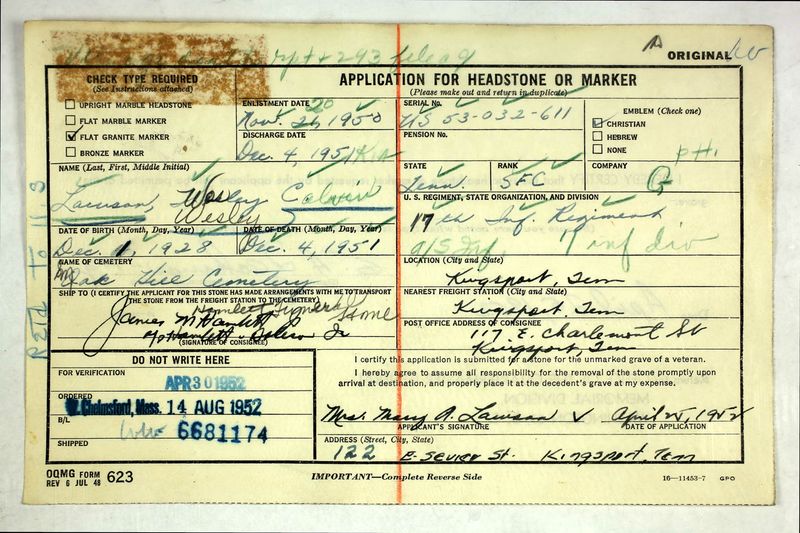 ORIGINAL
CHECK TYPE REQUIRED
(See Instructions attached)
UPRIGHT MARBLE HEADSTONE
FLAT MARBLE MARKER
FLAT GRANITE MARKER
BRONZE MARKER
APPLICATION FOR HEADSTONE OR MARKER
(Please make out and return in duplicate)
ENLISTMENT DATE
20
Nov. 21, 1950
DISCHARGE DATE
Dec. 4, 1951 KIA
SERIAL No.
US 53-032-611
PENSION No.
EMBLEM (Check one)
CHRISTIAN
HEBREW
NONE
PH
NAME (Last, First, Middle Initial)
Lawson, Wesley Calvin
Wesley
STATE
Tenn
RANK
SFC
COMPANY
G
U. S. REGIMENT, STATE ORGANIZATION, AND DIVISION
17th Inf. Regiment
7 inf div
DATE OF BIRTH (Month, Day, Year)
Dec. 1, 1928
DATE OF DEATH (Month, Day, Year)
Dec. 4, 1951
NAME OF CEMETERY
Oak Hill Cemetery
LOCATION (City and State)
Kingsport, Tenn
SHIP TO (I CERTIFY THE APPLICANT FOR THIS STONE HAS MADE ARRANGEMENTS WITH ME TO TRANSPORT
THE STONE FROM THE FREIGHT STATION TO THE CEMETERY)
James M Hamlett
(SIGNATURE OF CONSIGNEE)
NEAREST FREIGHT STATION (City and State)
Kingsport, Tenn
POST OFFICE ADDRESS OF CONSIGNEE
117 E. Charlemont St
Kingsport, Tenn
Retd to 11-3
DO NOT WRITE HERE
FOR VERIFICATION
APR 30 1952
ORDERED
W. Chelmsford, Mass. 14 AUG 1952
B/L
6681174
SHIPPED
I certify this application is submitted for a stone for the unmarked grave of a veteran.
I hereby agree to assume all responsibility for the removal of the stone promptly upon
arrival at destination, and properly place it at the decedent's grave at my expense.
Mrs. Mary A. Lawson April 25, 1952
APPLICANT'S SIGNATURE
DATE OF APPLICATION
ADDRESS (Street, City, State)
122 E. Sevier St. Kingsport, Tenn
OQMG FORM
REV 6 JUL 48 623
IMPORTANT—Complete Reverse Side
16—11453-7 GPO